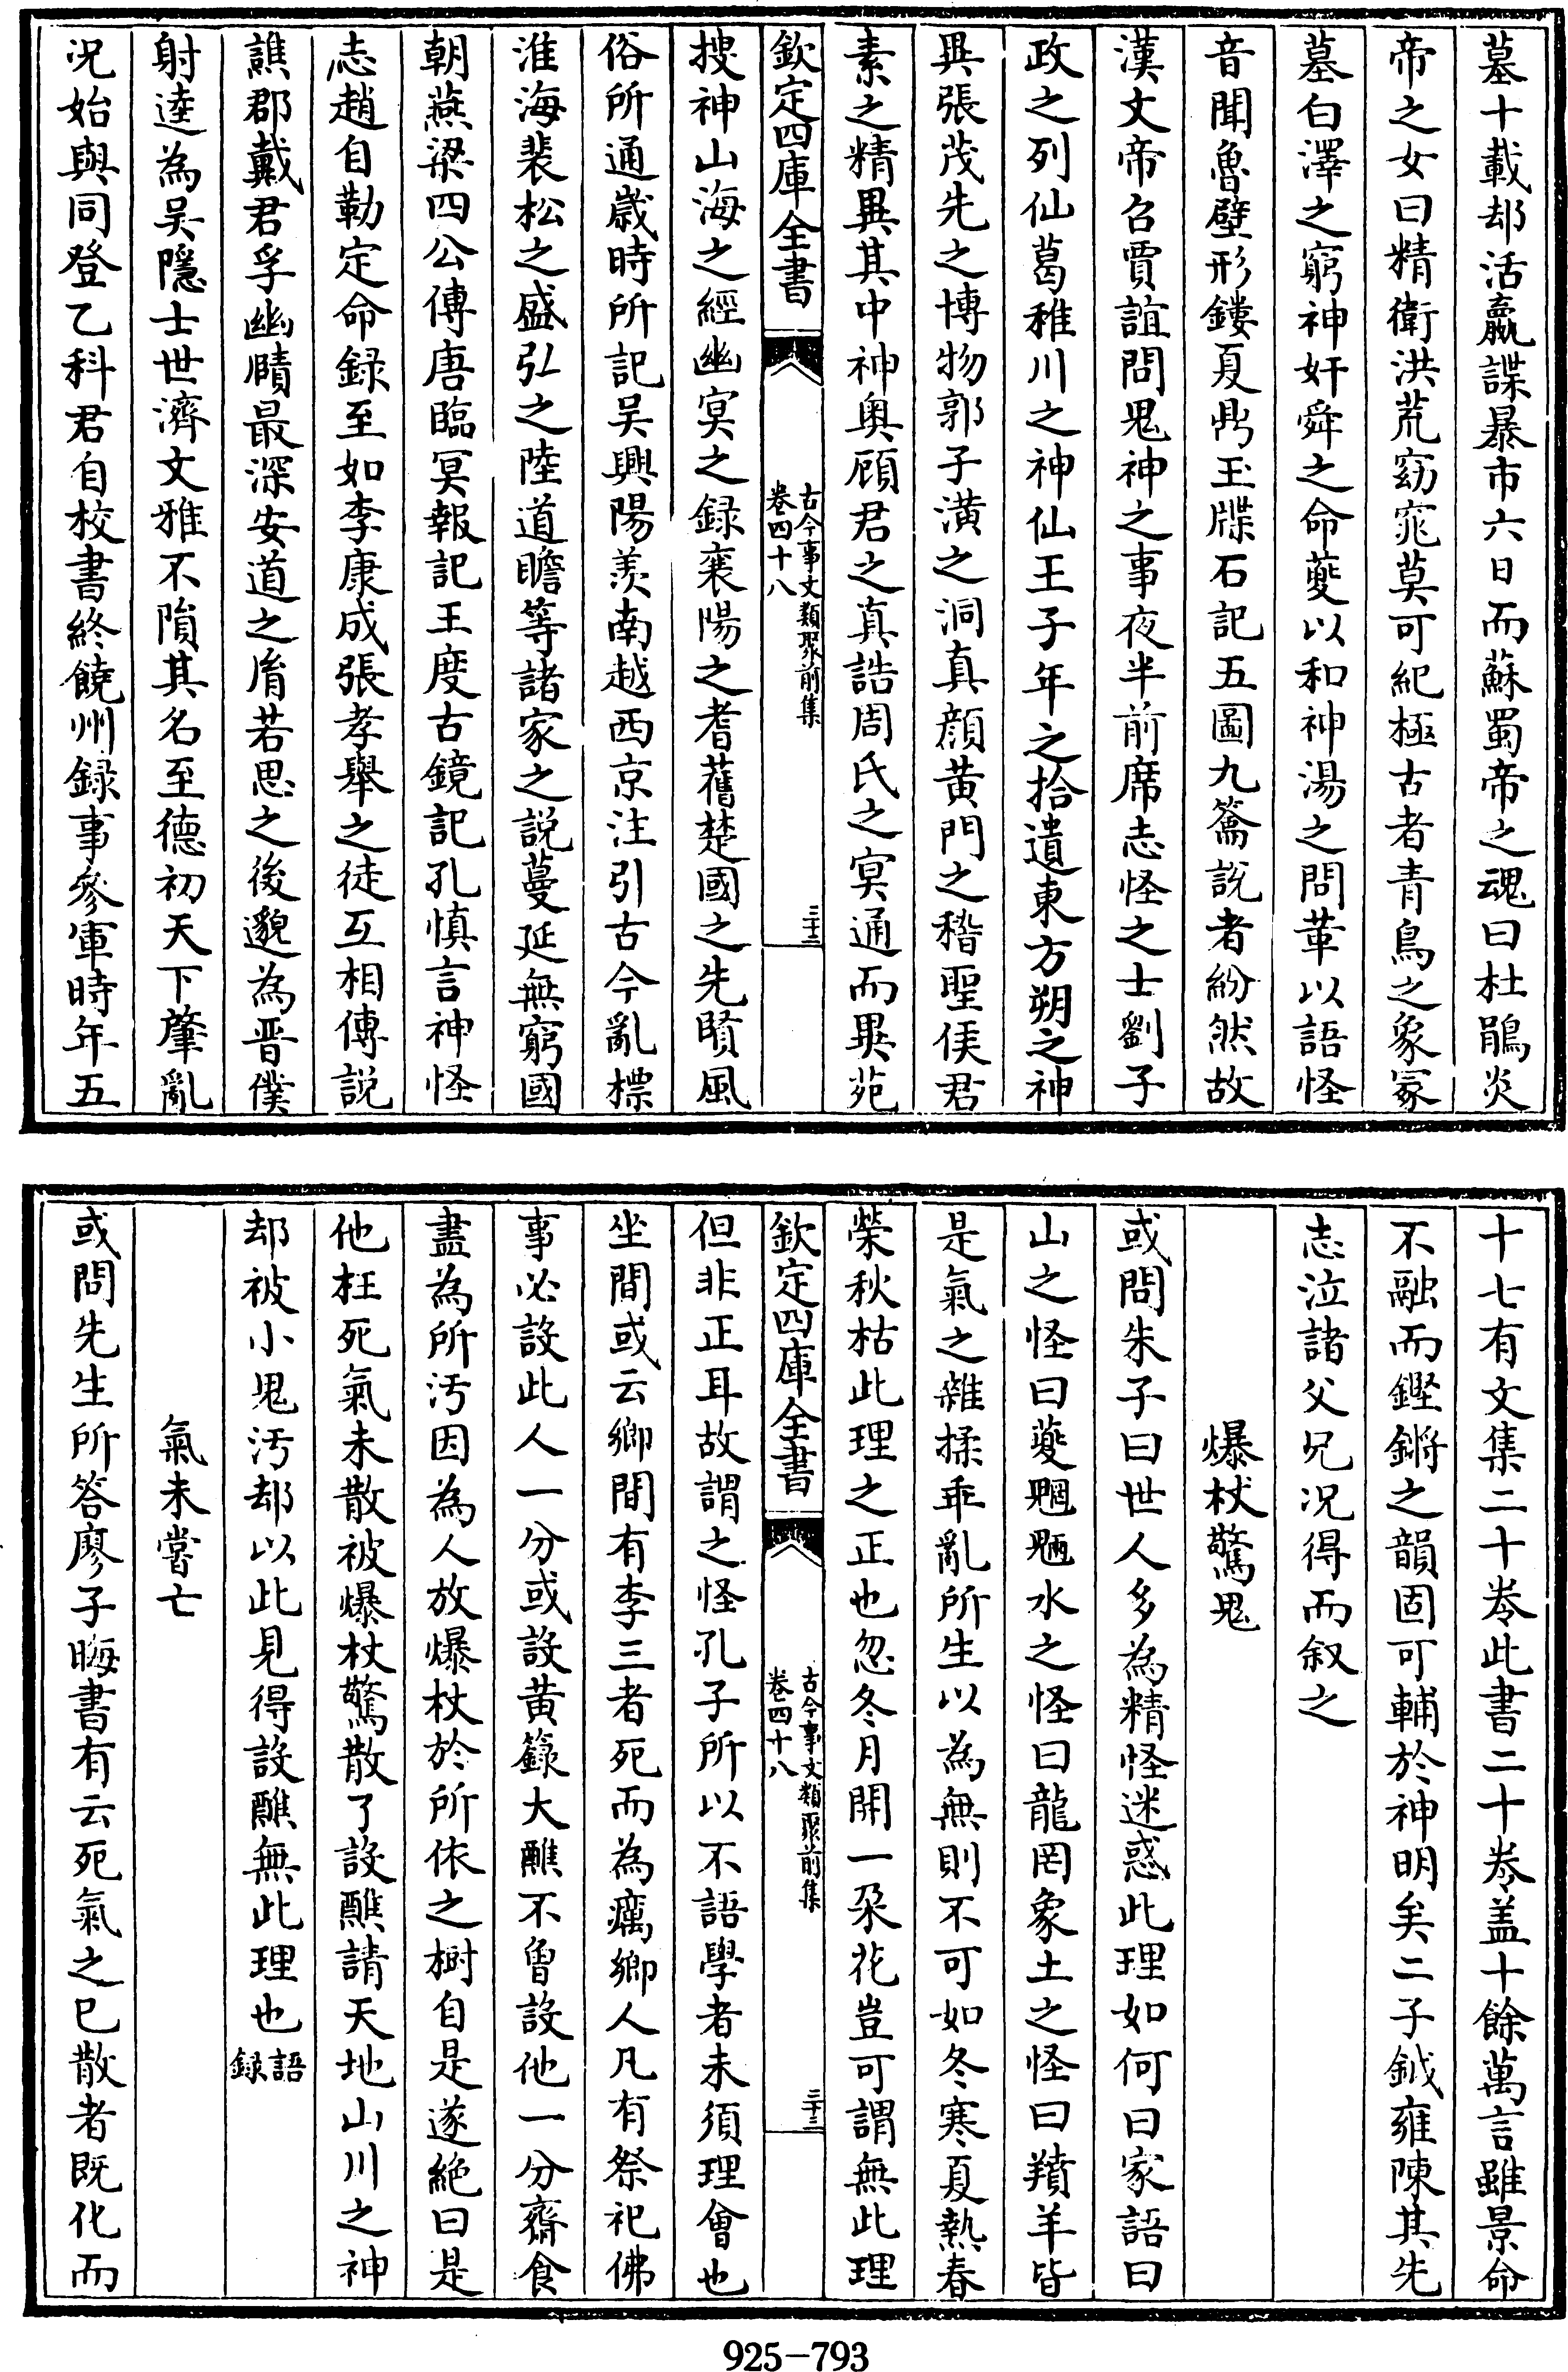 墓十載却活嬴諜暴市六日而蘇蜀帝之魂曰杜鵑炎
帝之女曰精衛洪荒窈窕莫可紀極古者青鳥之象冢
墓白澤之窮神奸舜之命夔以和神湯之問革以語怪
音聞魯壁形鏤夏鼎玉牒石記五圖九籥說者紛然故
漢文帝召賈誼問鬼神之事夜半前席志怪之士劉子
政之列仙葛稚川之神仙王子年之拾遺東方朔之神
異張茂先之博物郭子潢之洞真顔黄門之稽聖侯君
素之精異其中神奥顧君之真誥周氏之冥通而異苑
欽定四庫全書
古今事文類聚前集
卷四十八
三十二
搜神山海之經幽冥之録襄陽之耆舊楚國之先賢風
俗所通歲時所記吴興陽羨南越西京注引古今亂標
淮海裴松之盛弘之陸道瞻等諸家之説蔓延無窮國
朝燕梁四公傳唐臨冥報記王度古鏡記孔慎言神怪
志趙自勒定命録至如李康成張孝舉之徒互相傳説
譙郡戴君孚幽賾最深安道之胄若思之後邈為晉僕
射逵為吴隱士世濟文雅不隕其名至德初天下肇亂
况始與同登乙科君自校書終饒州録事參軍時年五
十七有文集二十卷此書二十卷盖十餘萬言雖景命
不融而鏗鏘之韻固可輔於神明矣二子鉞雍陳其先
志泣諸父兄况得而叙之
爆杖驚鬼
或問朱子曰世人多為精怪迷惑此理如何曰家語曰
山之怪曰夔魍魎水之怪曰龍罔象土之怪曰羵羊皆
是氣之雜揉乖亂所生以為無則不可如冬寒夏熱春
榮秋枯此理之正也忽冬月開一朶花豈可謂無此理
欽定四庫全書
古今事文類聚前集
卷四十八
三十三
但非正耳故謂之怪孔子所以不語學者未須理會也
坐間或云鄉間有李三者死而為癘鄉人凡有祭祀佛
事必設此人一分或設黄籙大醮不曾設他一分齋食
盡為所汚因為人放爆杖於所依之樹自是遂絶曰是
他枉死氣未散被爆杖驚散了設醮請天地山川之神
却被小鬼汚却以此見得設醮無此理也語録
氣未嘗亡
或問先生所答廖子晦書有云死氣之已散者既化而
925-793